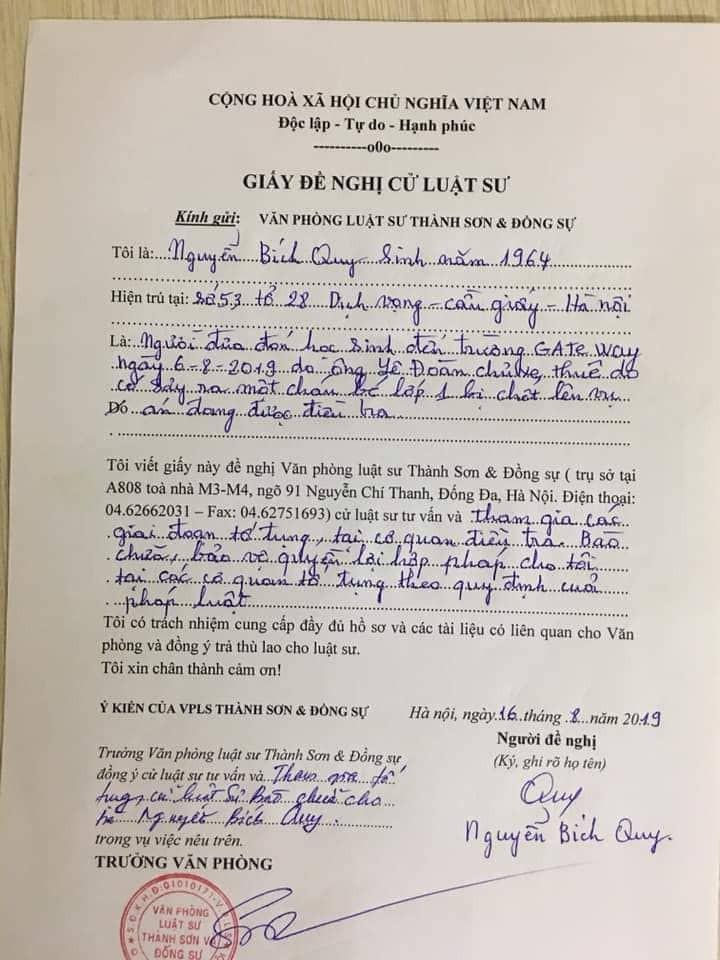 CỘNG HOÀ XÃ HỘI CHỦ NGHĨA VIỆT NAM
Độc lập - Tự do - Hạnh phúc
----------o0o---------
GIẤY ĐỀ NGHỊ CỬ LUẬT SƯ
Kính gửi: VĂN PHÒNG LUẬT SƯ THÀNH SƠN & ĐỒNG SỰ
Tôi là: Nguyễn Bích Quy Sinh năm 1964
Hiện trú tại: số 53 tổ 28 Dịch vọng - cầu giấy - Hà nội
Là: Người đưa đón học sinh đến trường GATE Way
ngày 6-8-2019 do ông Yê Đoàn chủ xe, thuê do
có sảy ra một cháu bé lớp 1 bị chết lên vụ
Do án đang được điều tra
Tôi viết giấy này đề nghị Văn phòng luật sư Thành Sơn & Đồng sự ( trụ sở tại
A808 toà nhà M3-M4, ngõ 91 Nguyễn Chí Thanh, Đống Đa, Hà Nội. Điện thoại:
04.62662031 – Fax: 04.62751693) cử luật sư tư vấn và tham gia các
giai đoạn tố tụng, tại cơ quan điều tra. Bào
chữa, bảo vệ quyền lợi hợp pháp cho tôi
tại các cơ quan tố tụng theo quy định cuả
pháp luật
Tôi có trách nhiệm cung cấp đầy đủ hồ sơ và các tài liệu có liên quan cho Văn
phòng và đồng ý trả thù lao cho luật sư.
Tôi xin chân thành cảm ơn!
Ý KIẾN CỦA VPLS THÀNH SƠN & ĐỒNG SỰ
Trưởng Văn phòng luật sư Thành Sơn & Đồng sự
đồng ý cử luật sư tư vấn và Tham gia tố
tụng, cử luật sư Bào chữa cho
bà Nguyễn Bích Quy.
trong vụ việc nêu trên.
TRƯỞNG VĂN PHÒNG
VĂN PHÒNG
LUẬT SƯ
THÀNH SƠN VÀ
ĐỒNG SỰ
Hà nội, ngày 16 tháng 8 năm 2019
Người đề nghị
(Ký, ghi rõ họ tên)
Quy
Nguyễn Bích Quy.